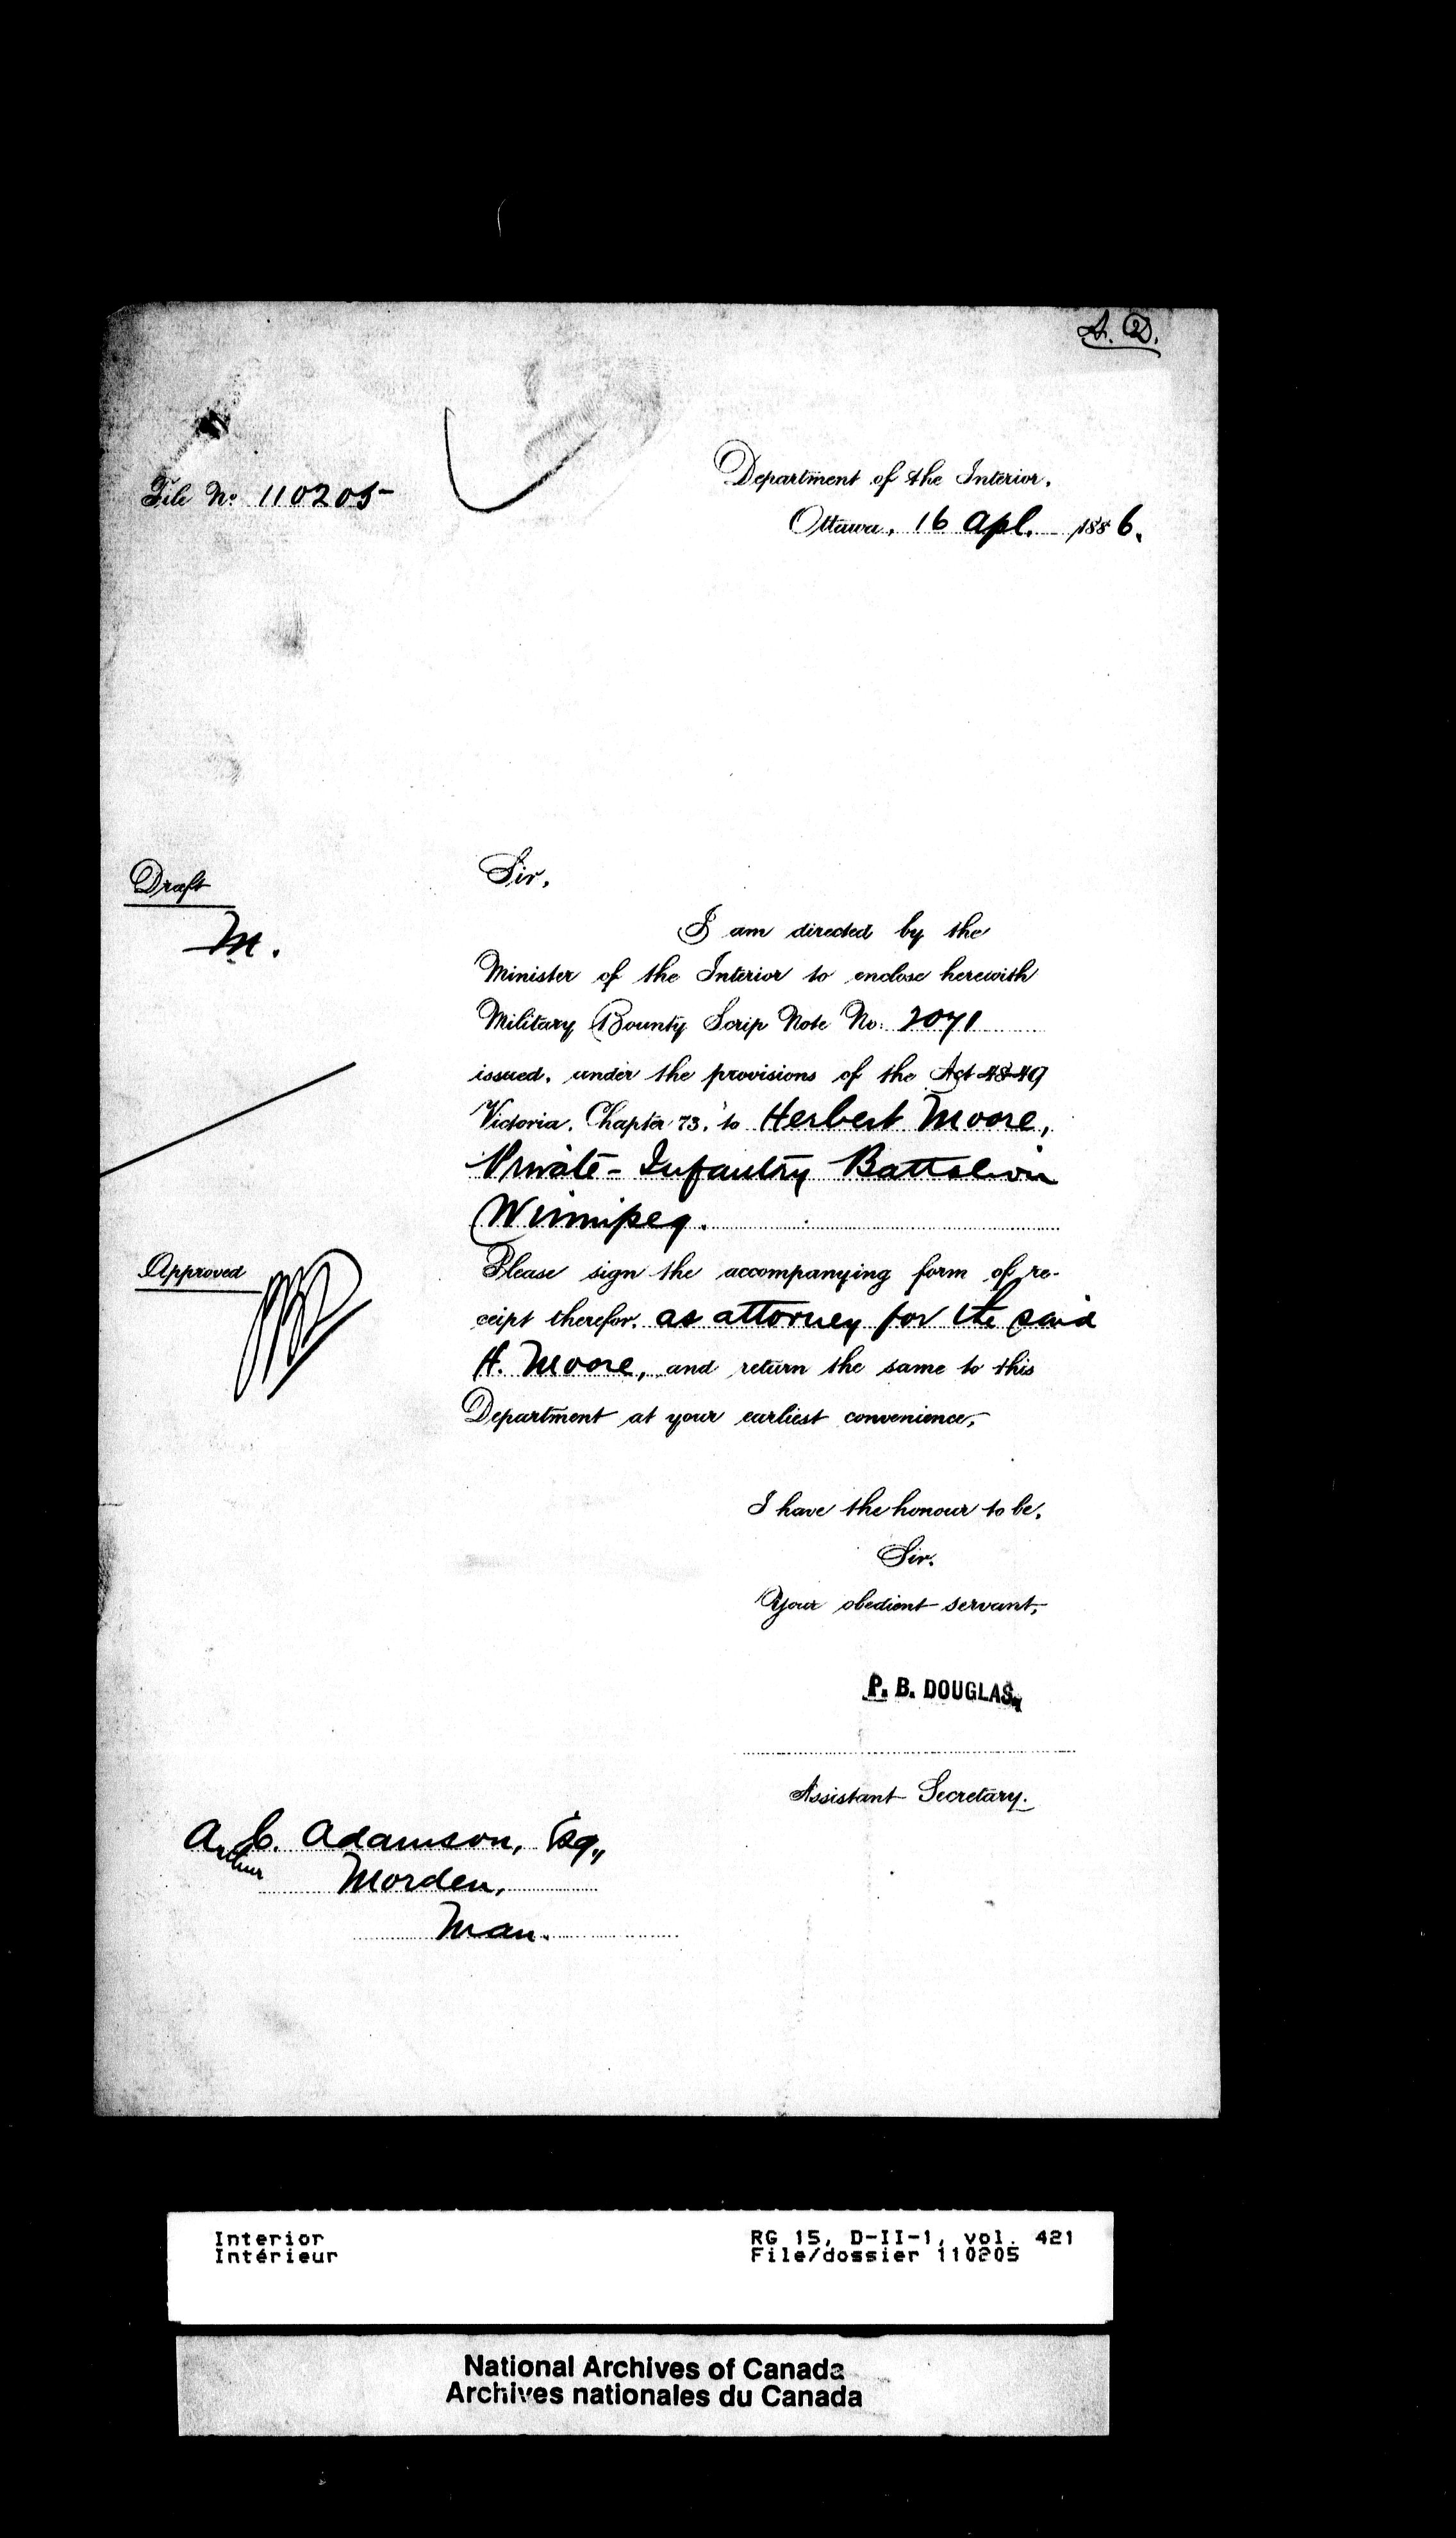 A. D.
File No. 110205
Department of the Interior,
Ottawa, 16 Apl. 1886.
Draft
M.
Sir,
I am directed by the
Minister of the Interior to enclose herewith
Military Bounty Scrip Note No. 2071
issued, under the provisions of the Act 48-49
Victoria, Chapter 73, to Herbert Moore,
Private - Infantry Battalion
Winnipeg.
Approved
Please sign the accompanying form of re-
ceipt therefor, as attorney for the said
H. Moore, and return the same to this
Department at your earliest convenience,
I have the honour to be,
Sir,
Your obedient servant,
P. B. DOUGLAS,
Assistant Secretary.
A. C. Adamson, Esq.,
Arthur
Morden,
Man.
Interior
Intérieur
RG 15, D-II-1, vol. 421
File/dossier 110205
National Archives of Canada
Archives nationales du Canada